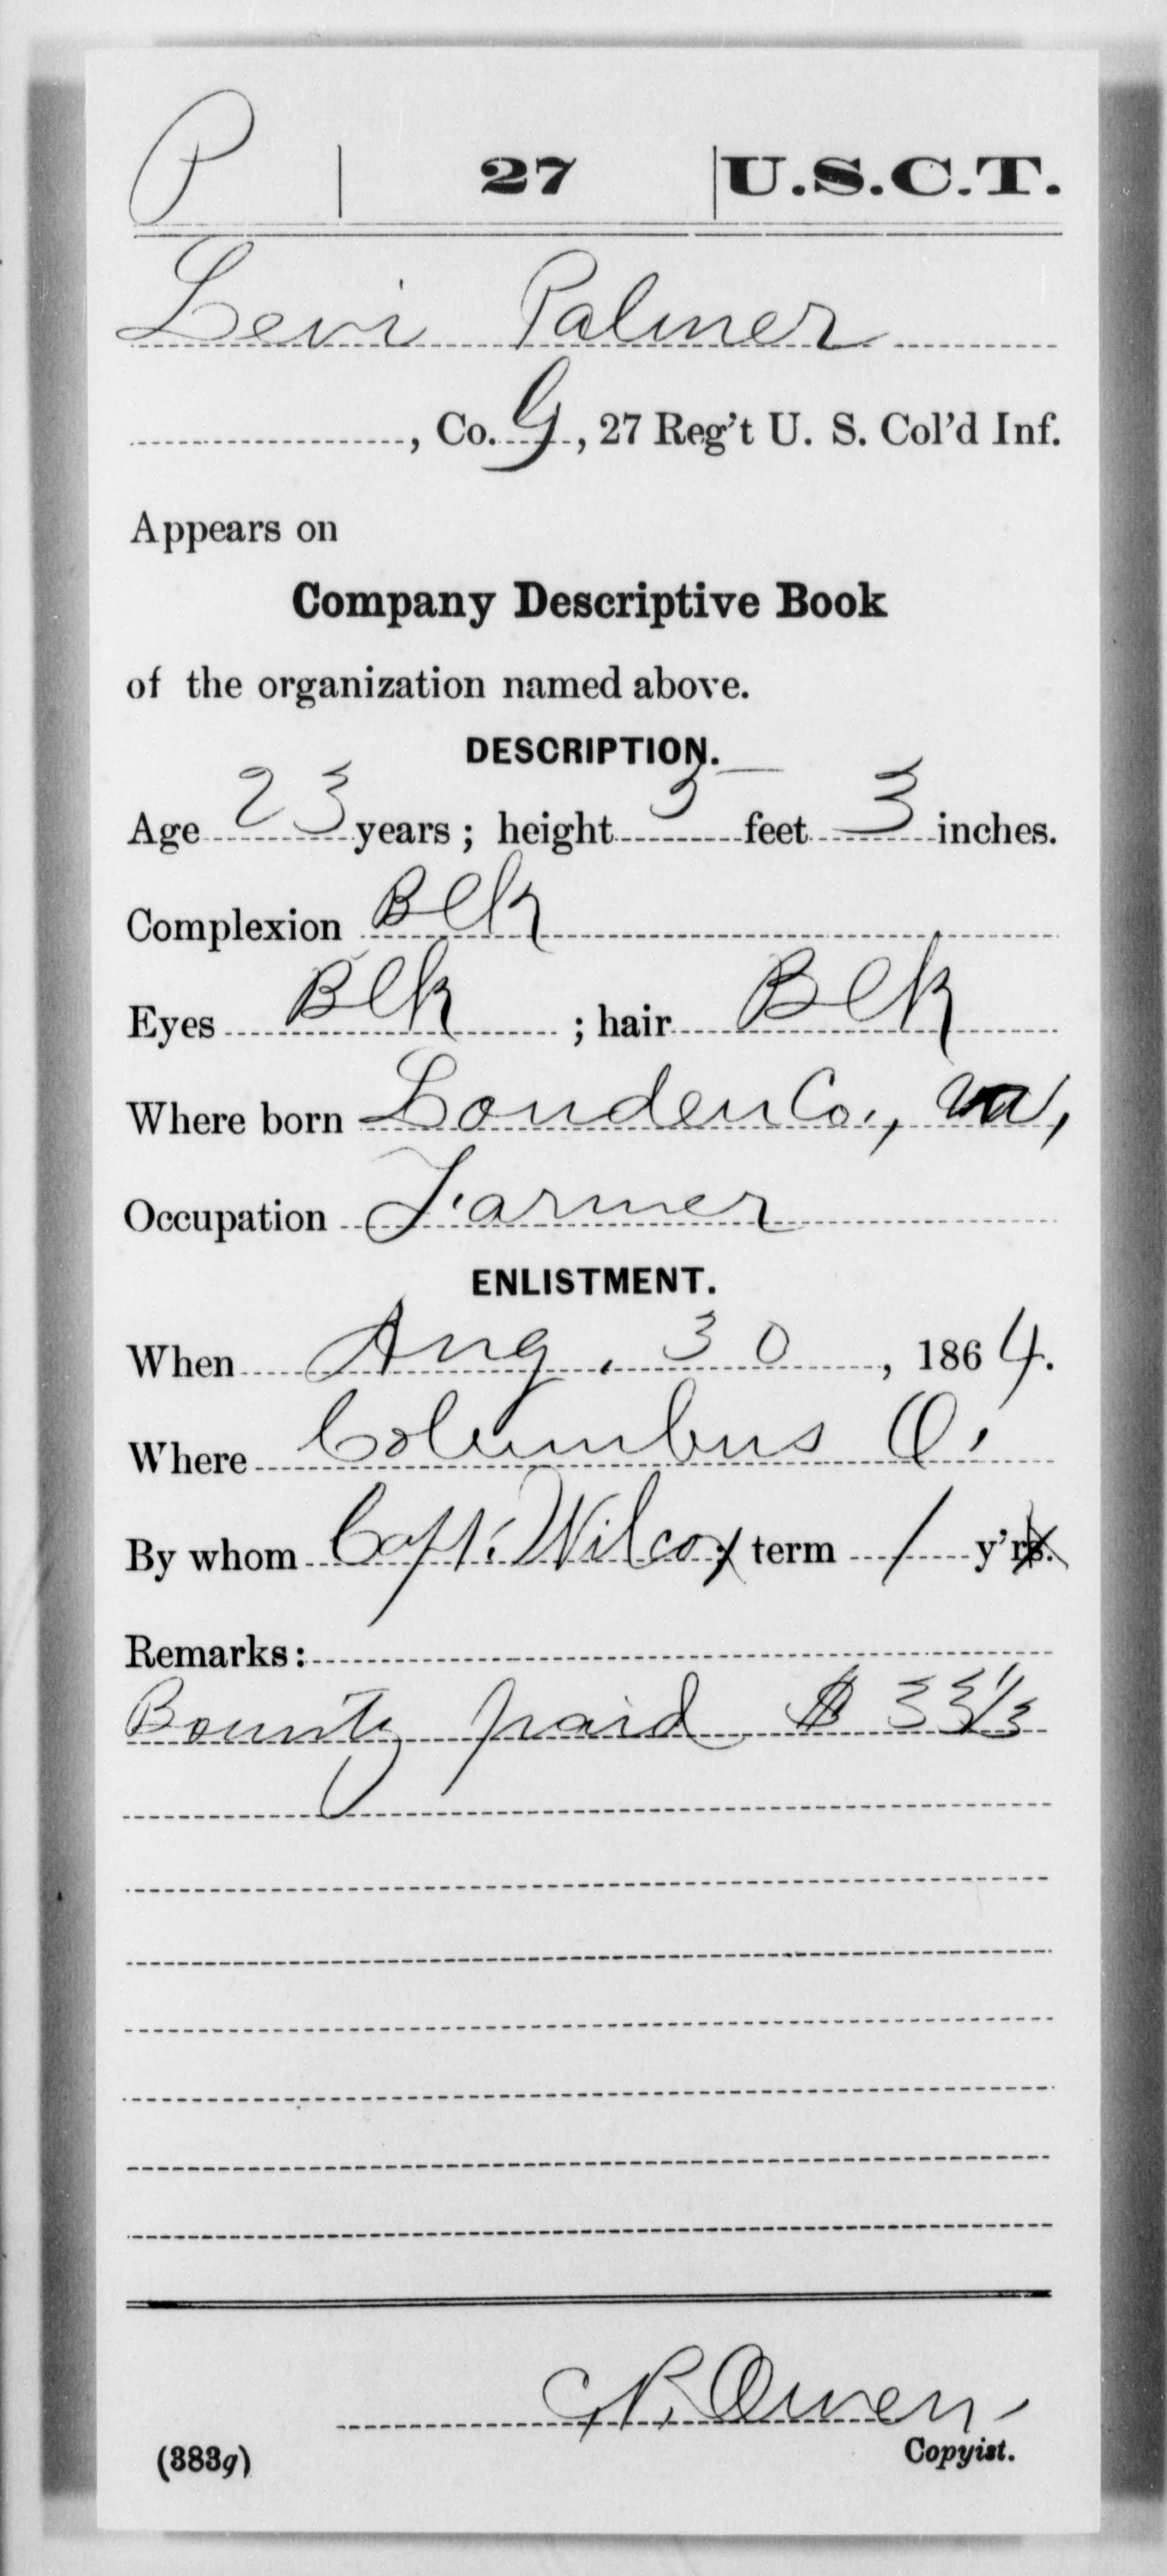 P | 27 | U.S.C.T.
Levi Palmer
, Co. G, 27 Reg't U. S. Col'd Inf.
Appears on
Company Descriptive Book
of the organization named above.
DESCRIPTION.
Age 23 years; height 5 feet 3 inches.
Complexion Blk
Eyes Blk ; hair Blk
Where born Louden Co., Va,
Occupation Farmer
ENLISTMENT.
When Aug. 30, 1864.
Where Columbus O.
By whom Capt. Wilcox; term 1 y'rs.
Remarks:
Bounty paid $ 33 1/3
Owen
(383g) Copyist.